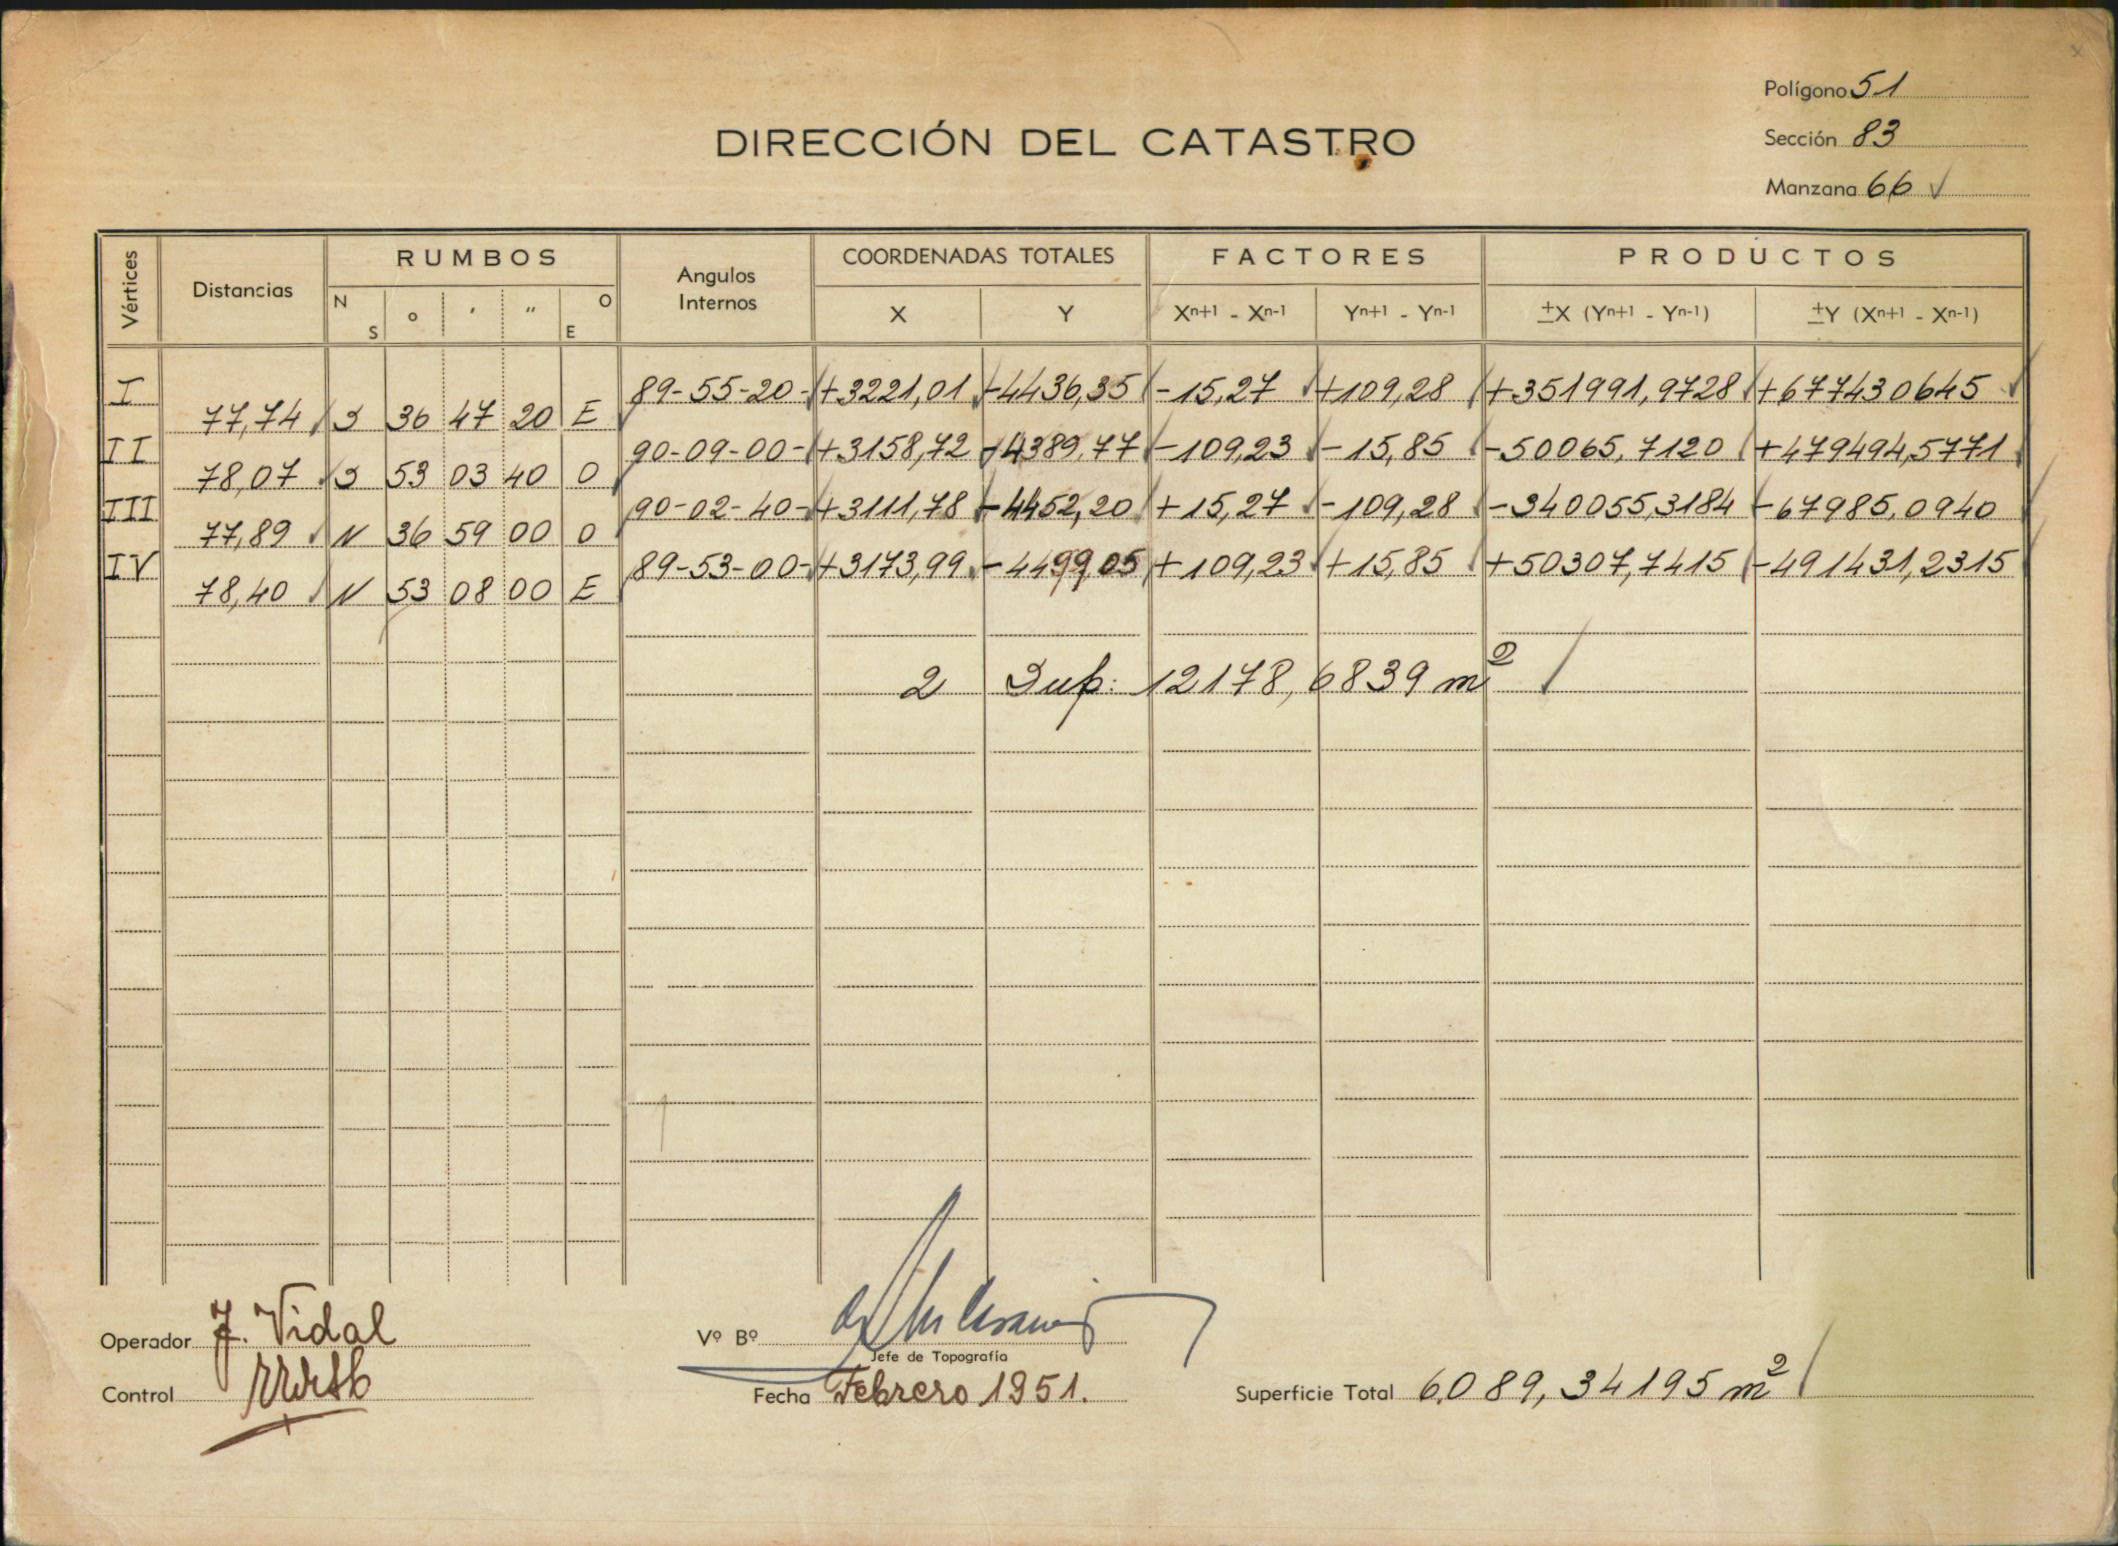 Polígono 51
DIRECCIÓN DEL CATASTRO
Sección 83
Manzana 66 ✓
Vértices Distancias RUMBOS Angulos Internos COORDENADAS TOTALES FACTORES PRODUCTOS
N S o ′ ″ O E X Y Xn+1 - Xn-1 Yn+1 - Yn-1 ±X (Yn+1 - Yn-1) ±Y (Xn+1 - Xn-1)
I 89-55-20- +3221,01 -4436,35 -15,27 +109,28 +351991,9728 +677430645
77,74 S 36 47 20 E
II 90-09-00- +3158,72 -4389,77 -109,23 -15,85 -50065,7120 +479494,5771
78,07 S 53 03 40 O
III 90-02-40- +3111,78 -4452,20 +15,27 -109,28 -340055,3184 -67985,0940
77,89 N 36 59 00 O
IV 89-53-00- +3173,99 -4499,05 +109,23 +15,85 +50307,7415 -491431,2315
78,40 N 53 08 00 E
2 Sup: 12178,6839 m²
Operador J. Vidal
Vº Bº
Jefe de Topografía
Control
Fecha Febrero 1951.
Superficie Total 6.089,34195 m²